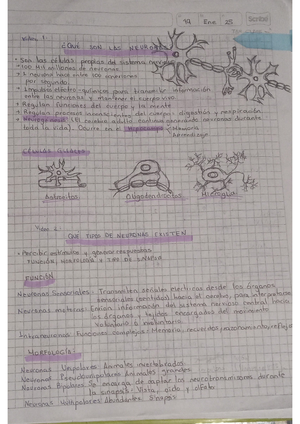 14 Ene 25 Scribe
Video 1
¿QUE SON LAS NEURONAS
• Son las células propias del sistema nervioso
+100 mil millones de neuronas
• 1 neurona hace entre 100 conexiones
por segundo.
• Impulsos electro-químicos para transmitir información
entre las neuronas y mantener el cuerpo vivo.
• Regulan funciones del cuerpo y la mente
• Regulan procesos inconscientes del cuerpo: digestión y respiración.
• Neurogénesis: (El cerebro adulto continua generando neuronas durante
toda la vida). Ocurre en el Hipocampo Memoria
Aprendizaje
CÉLULAS GLIALES
Astrocitos Oligodendrocitos Microglia
Video 2
QUE TIPOS DE NEURONAS EXISTEN
• Percibir estímulos y generar respuestas
FUNCIÓN, MORFOLOGÍA Y TIPO DE SINAPSIS
FUNCIÓN
Neuronas Sensoriales: Transmiten señales eléctricas desde los órganos
sensoriales (sentidos) hacia el cerebro, para interpretarse
Neuronas motoras: Envían información del sistema nervioso central hacia
los órganos y tejidos encargados del movimiento
Voluntario o involuntario
Interneuronas: Funciones complejas: Memoria, recuerdos, razonamiento, reflejo
MORFOLOGÍA
Neuronas Unipolares: Animales invertebrados
Neuronas Pseudounipolares: Animales grandes
Neuronas Bipolares: Se encarga de captar los neurotransmisores durante
la sinapsis: Vista, oído y olfato
Neuronas Multipolares: Abundantes Sinapsis